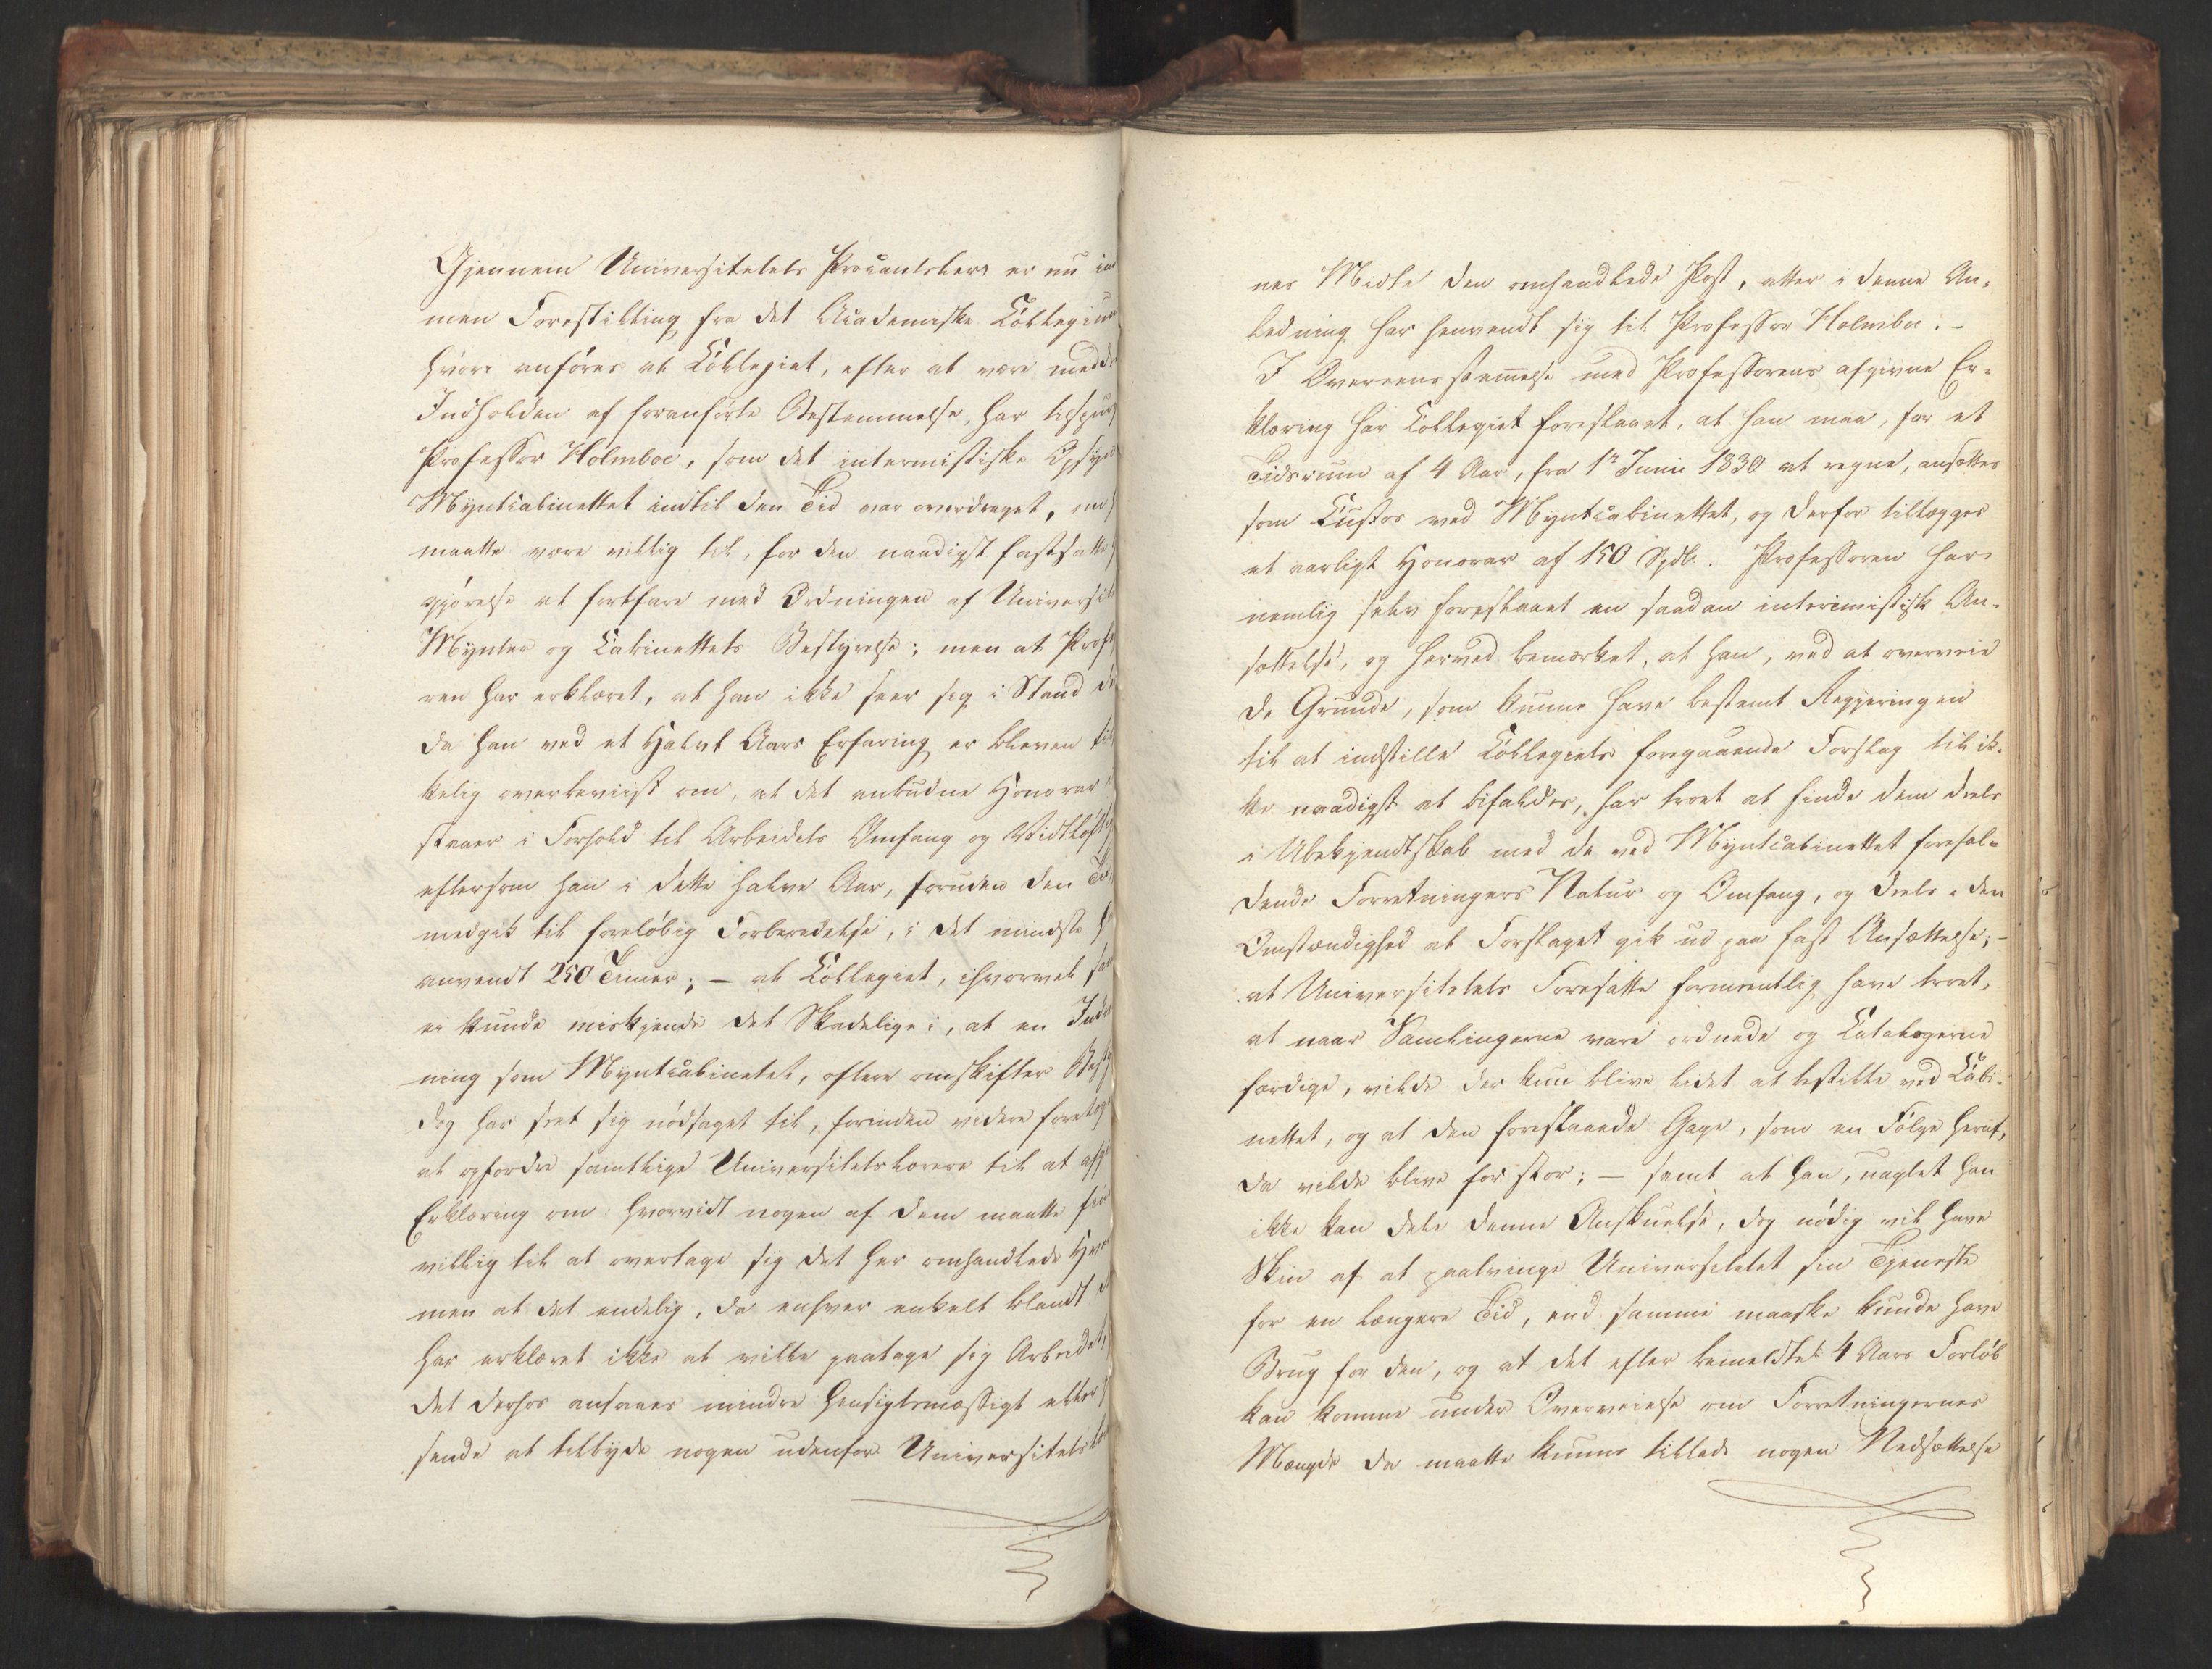 Gjennem Universitetets Procantsleer er nu in
men Forestilling fra det Academiske Collegium
hvori anføres at Collegiet, efter at være medde
Indholden af foranførte Bestemmelse, har tilspurg
Professor Holmboe, som det intermistiske Opsyn
Myntcabinettet indtil den Tid var overdraget, om
maatte være villig til, for den naadigst fastsatte
gjørelse at fortfare med Ordningen af Universit
Mynter og Cabinettets Bestyrelse; men at Profes
ren har erklæret, at han ikke seer sig i Stand de
da han ved et Halvt Aars Erfaring er bleven til
kelig overbeviist om, at det anbudne Honorar
staaer i Forhold til Arbeidets Omfang og Vidtløftig
eftersom han i dette halve Aar, foruden den Tid
medgik til foreløbig Forberedelse, i det mindste h
anvendt 250 Timer; — at Collegiet, ihvorvel saa
ei kunde miskjende det Skadelige i, at en Indr
ning som Myntcabinetet, oftere omskifter Besty
dog har seet sig nødsaget til, forinden videre foretoge
at opfordre samtlige Universitetslærere til at afg
Erklæring om: hvorvidt nogen af dem maatte fin
villig til at overtage sig det her omhandlede Hver
men at det endelig, da enhver enkelt blandt d
har erklæret ikke at ville paatage sig Arbeidet,
det derhos ansaaes mindre hensigtsmæssigt eller
sende at tilbyde nogen udenfor Universitetslær
nes Midte den omhandlede Post, atter i denne An-
ledning har henvendt sig til Professor Holmboe. -
I Overeensstem̄else med Professorens afgivne Er-
klæring har Collegiet foreslaaet, at han maa, for et
Tidsrum af 4 Aar, fra 1te Junii 1830 at regne, ansættes
som Custos ved Myntcabinettet, og derfor tillægges
et aarligt Honorar af 150 Spdlr. Professoren har
nemlig selv foreslaaet en saadan interimistisk An-
sættelse, og herved bemærket, at han, ved at overveie
de Grunde, som kunne have bestemt Regjeringen
til at indstille Collegiets foregaaende Forslag til ik-
ke naadigst at bifaldes, har troet at finde dem deels
i Ubekjendtskab med de ved Myntcabinettet forefal-
dende Forretningers Natur og Omfang, og deels i den
Omstændighed at Forslaget gik ud paa fast Ansættelse; -
at Universitetets Foresatte formeentlig have troet,
at naar Samlingerne vare ordnede og Catalogerne
færdige, vilde der kun blive lidet at bestille ved Cabi-
nettet, og at den foreslaaede Gage, som en Følge heraf,
da vilde blive for stor; — samt at han, uagtet han
ikke kan dele denne Anskuelse, dog nødig vil have
Skin af at paatvinge Universitetet sin Tjeneste
for en længere Tid, end samme maaske kunde have
Brug for den, og at det efter bemeldte 4 Aars Forløb
kan komme under Overveielse om Forretningernes
Mængde da maatte kunne tillade nogen Nedsættelse